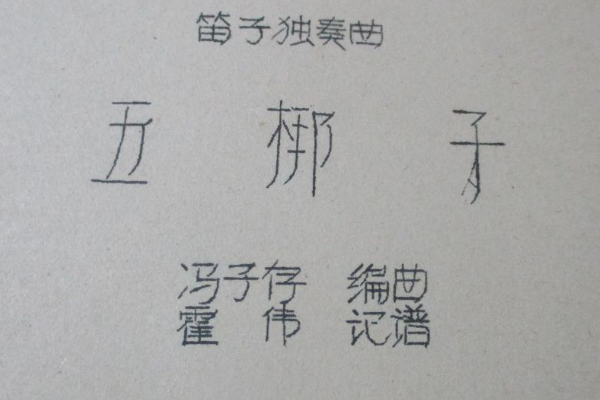 笛子独奏曲
五梆子
冯子存 编曲
霍伟 记谱